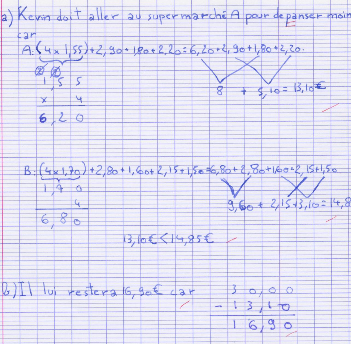 a) Kevin doit aller au supermarché A pour dépanser moin
car
A: (4x1,55)+2,90+1,80+2,20=6,20+2,90+1,80+2,20.
1,55
x 4
6,20
8 + 5,10=13,10€
B: (4x1,70)+2,80+1,60+2,15+1,50=6,80+2,80+1,60+2,15+1,50
1,70
4
6,80
9,60 + 2,15+3,10=14,8
13,10€<14,85€
b) Il lui restera 16,90€ car
30,00
- 13,10
16,90